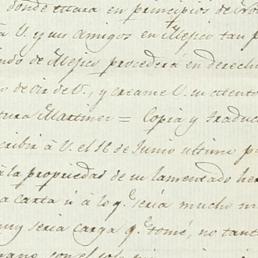 donde estara en principios de
a V. y sus amigos en Mejico tan
do de Mejico procedera en derech
de oir de V., y creame V. su atento
tura Martinez = Copia y traduc
cribir à V. el 16 de Junio ultimo p
à la propriedad de su lamentado he
a carta ò à lo qe. seria mucho m
muy seria carga qe. tomé, no tant